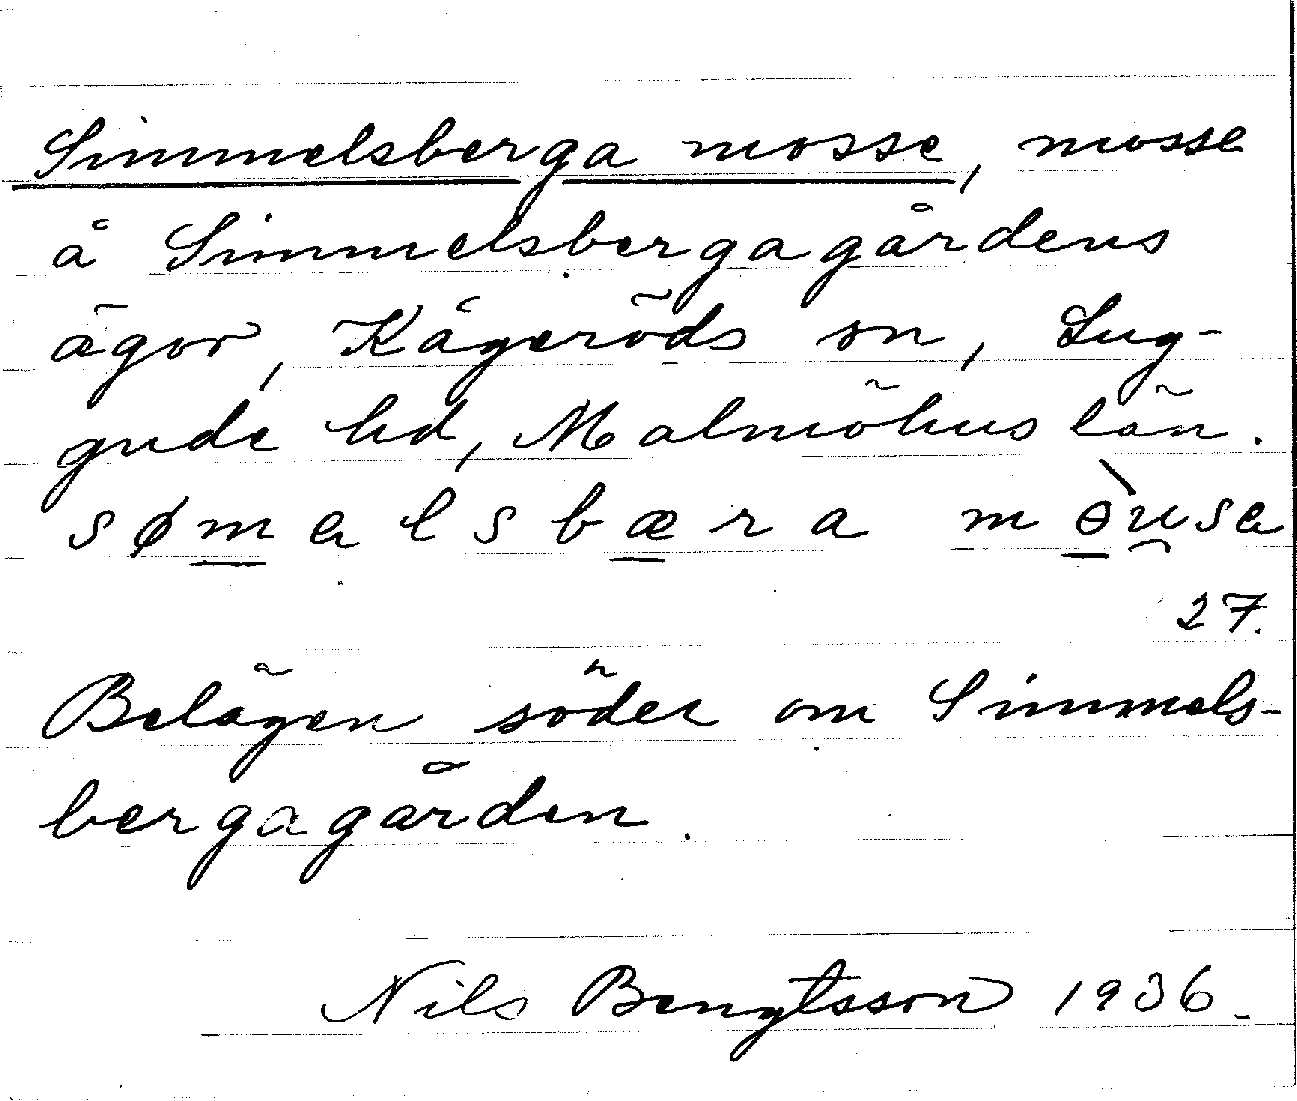 Simmelsberga mosse, mosse
å Simmelsbergagårdens
ägor, Kågeröds sn, Lug-
gude hd, Malmöhus län.
søm̲elsbæ̲ra mə̲̀u̯sa
27.
Belägen söder om Simmels-
bergagården.
Nils Bengtsson 1936.